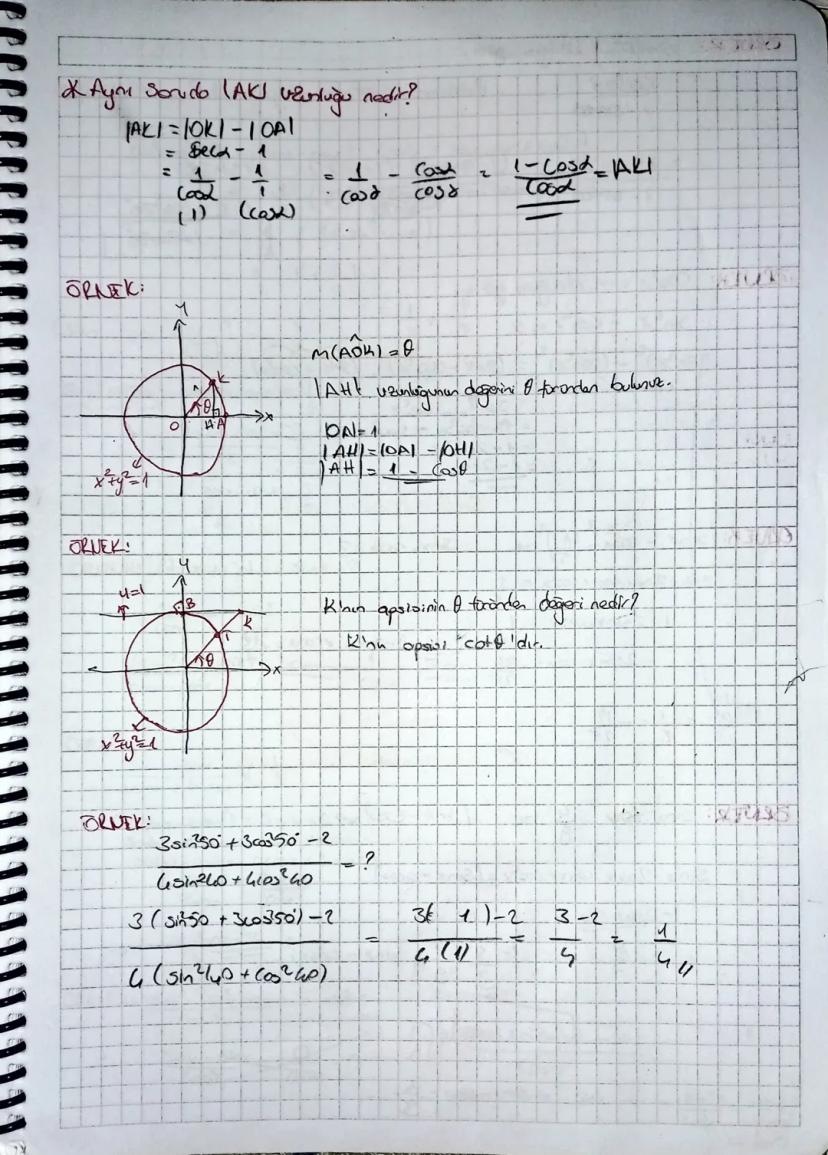 * Aynı Soruda |AK| uzunluğu nedir?
|AK| = |OK| - |OA|
= Secα - 1
= 1/Cosα - 1/1 = 1/Cosα - Cosα/Cosα = 1-Cosα/Cosα = |AK|
(1) (cosα)
ÖRNEK:
y
K
1
θ
O H A x
x²+y²=1
m(AÔK) = θ
|AH| uzunluğunun değerini θ türünden bulunuz.
OA=1
|AH|=|OA| - |OH|
|AH|= 1 - Cosθ
ÖRNEK:
y
y=1
B
K
T
θ
x
x²+y²=1
K'nın apsisinin θ türünden değeri nedir?
K'nın apsisi "cotθ"dır.
ÖRNEK:
3sin²50° + 3cos²50° - 2 / 4sin²40 + 4cos²40 = ?
3(sin²50 + 3cos²50°) - 2 / 4(sin²40 + cos²40) = 3(1)-2 / 4(1) = 3-2 / 4 = 1/4 //